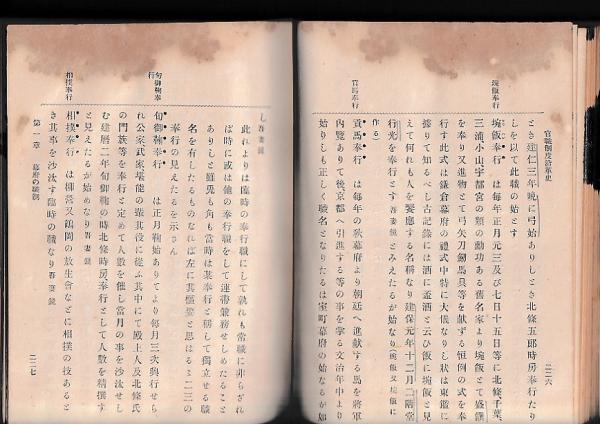 官職制度沿革史
二二六
とき建仁三年晩に弓始ありしとき北條五郎時房奉行たり
しを以て此職の始とす
埦飯奉行
埦飯奉行 は毎年正月元三及七日十五日等に北條千葉、
三浦小山宇都宮の類の勳功ある舊名家より埦飯とて盛饌
を奉り又進物とて弓矢刀劔馬具等を献ずる恒例の式を奉
行す此式は鎌倉幕府の禮式中特に大儀なりし狀は東鑑に
據りて知るべし古記錄には酒に盃酒と云ひ飯に埦飯と見
えて何れも人を饗應する名稱なり建保元年十二月二階堂
行光を奉行とす吾妻鏡とみえたるが始なり(埦飯又垸飯に
作る)
貢馬奉行
貢馬奉行 は毎年の秋幕府より朝廷へ進献する馬を將軍
內覽ありて後京都へ引進する等の事を掌る文治年中より
始りしも正しく職名となりたるは室町幕府の始なるが如
し吾妻鏡
此れよりは臨時の奉行職にして孰れも常職に非らざれ
ば時に或は他の奉行職をして連帶兼務せしめたること
ありしと雖兎も角も當時は某奉行と稱して獨立せる職
名を有したるものなれば左に其概要と思はるゝ二三の
奉行の見えたるを示さん
旬御鞠奉行
旬御鞠奉行 は正月鞠始ありてより每月三次興行せら
れ公家武家堪能の輩其役に從ふ其中にて殿上人及北條氏
の門族等を奉行と定めて人數を催し當月の事を沙汰せし
む建曆二年旬御鞠の時北條時房奉行として人數を精撰す
と見えたるが始めなり吾妻鏡
相撲奉行
相撲奉行 は柳營又鶴岡の放生會などに相撲の技あると
き其事を沙汰す臨時の職なり吾妻鏡
第一章 幕府の職制
二二七